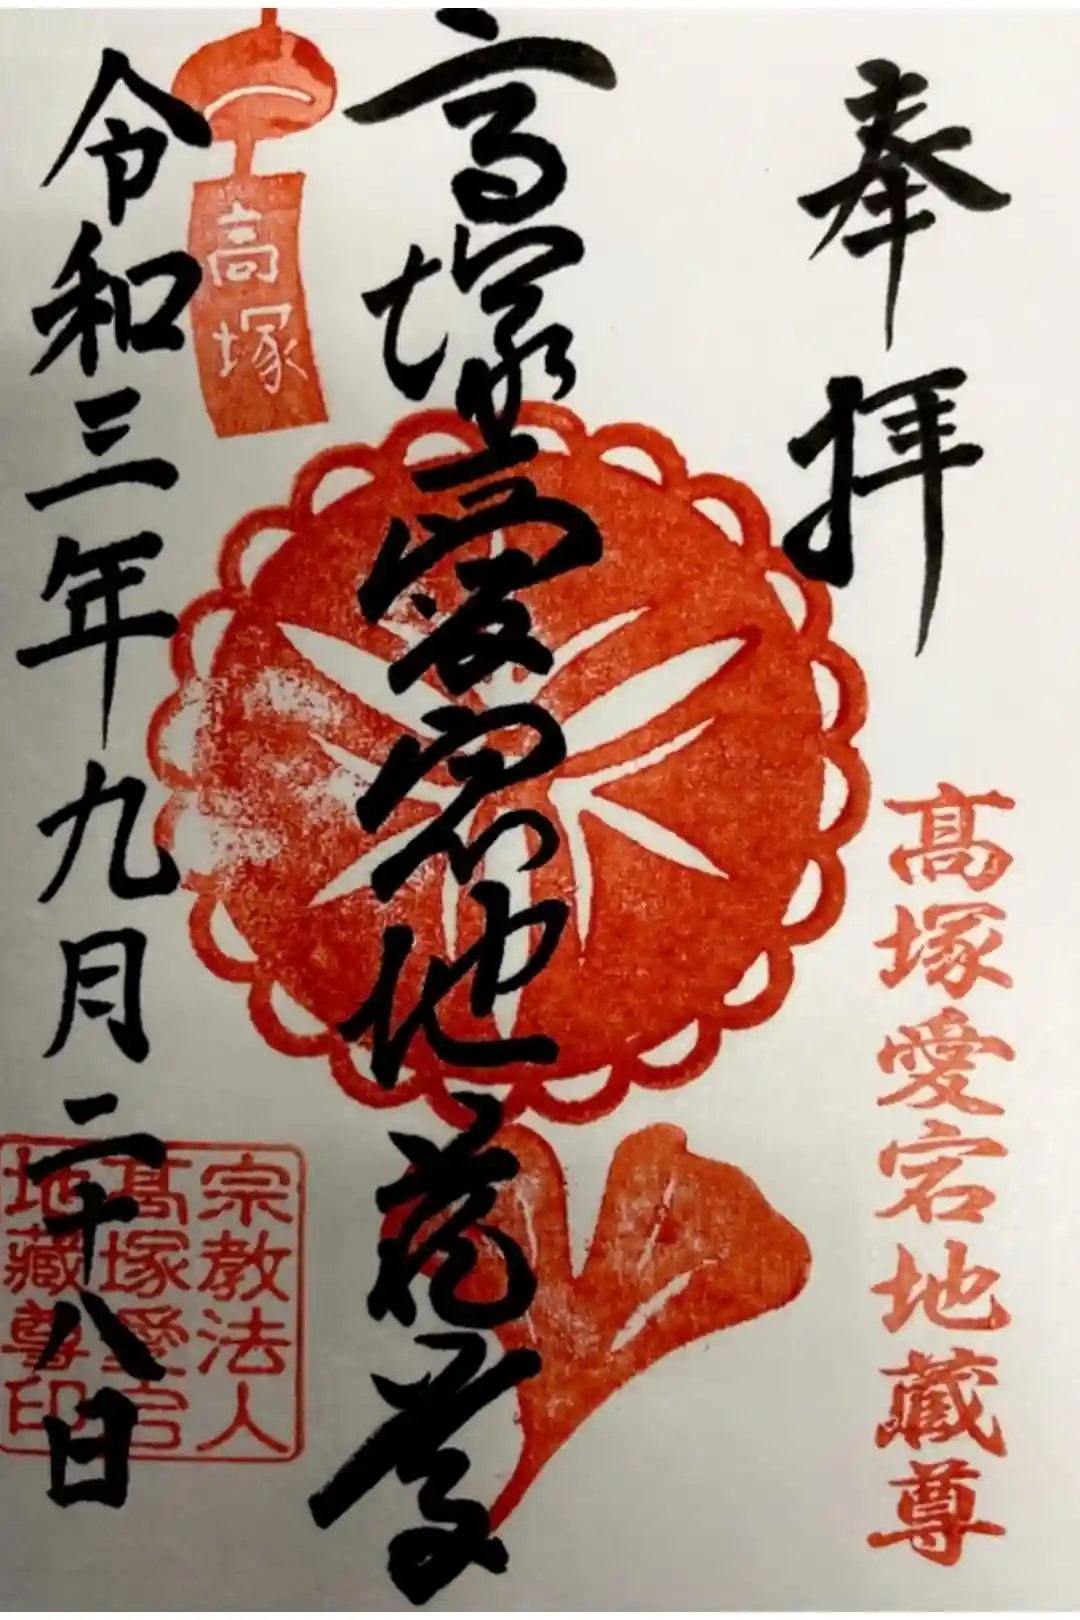 奉拝
髙塚愛宕地蔵尊
高塚愛宕地蔵尊
高塚
令和三年九月二十八日
宗教法人
髙塚愛宕
地蔵尊印